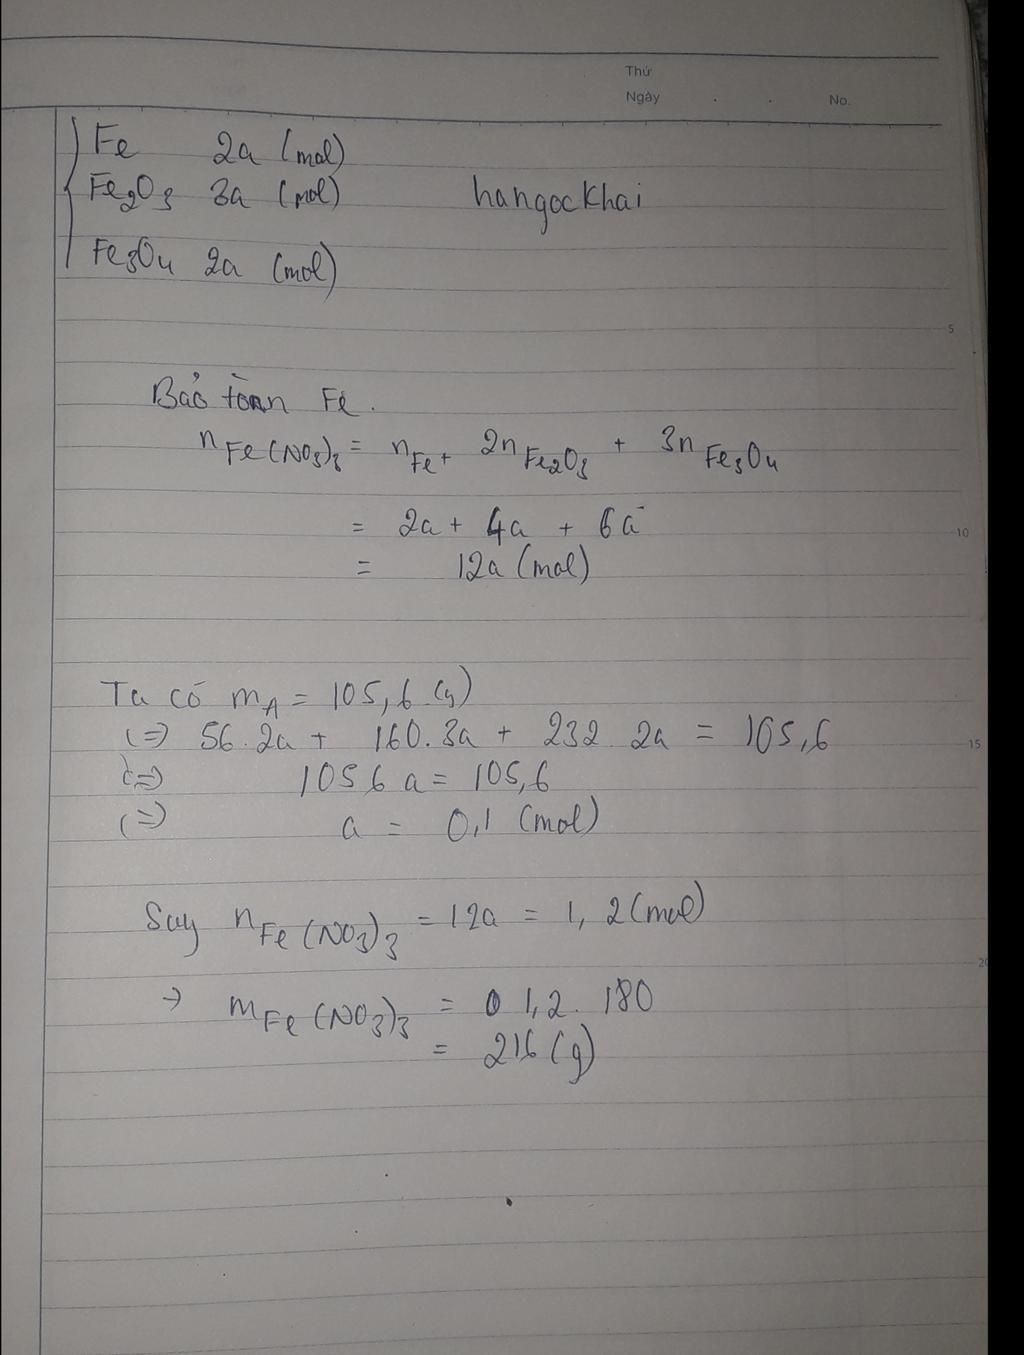 Thứ
Ngày . . No.
Fe 2a (mol)
Fe₂O₃ 3a (mol) hangockhai
Fe₃O₄ 2a (mol)
5
Bảo toàn Fe.
n Fe(NO₃)₃ = n Fe + 2n Fe₂O₃ + 3n Fe₃O₄
= 2a + 4a + 6a
10
= 12a (mol)
Ta có m A = 105,6 (g)
(=) 56.2a + 160.3a + 232 2a = 105,6
15
(=) 1056 a = 105,6
(=) a = 0,1 (mol)
Suy n Fe(NO₃)₃ = 12a = 1,2 (mol)
20
→ m Fe(NO₃)₃ = 0 1,2. 180
= 216 (g)